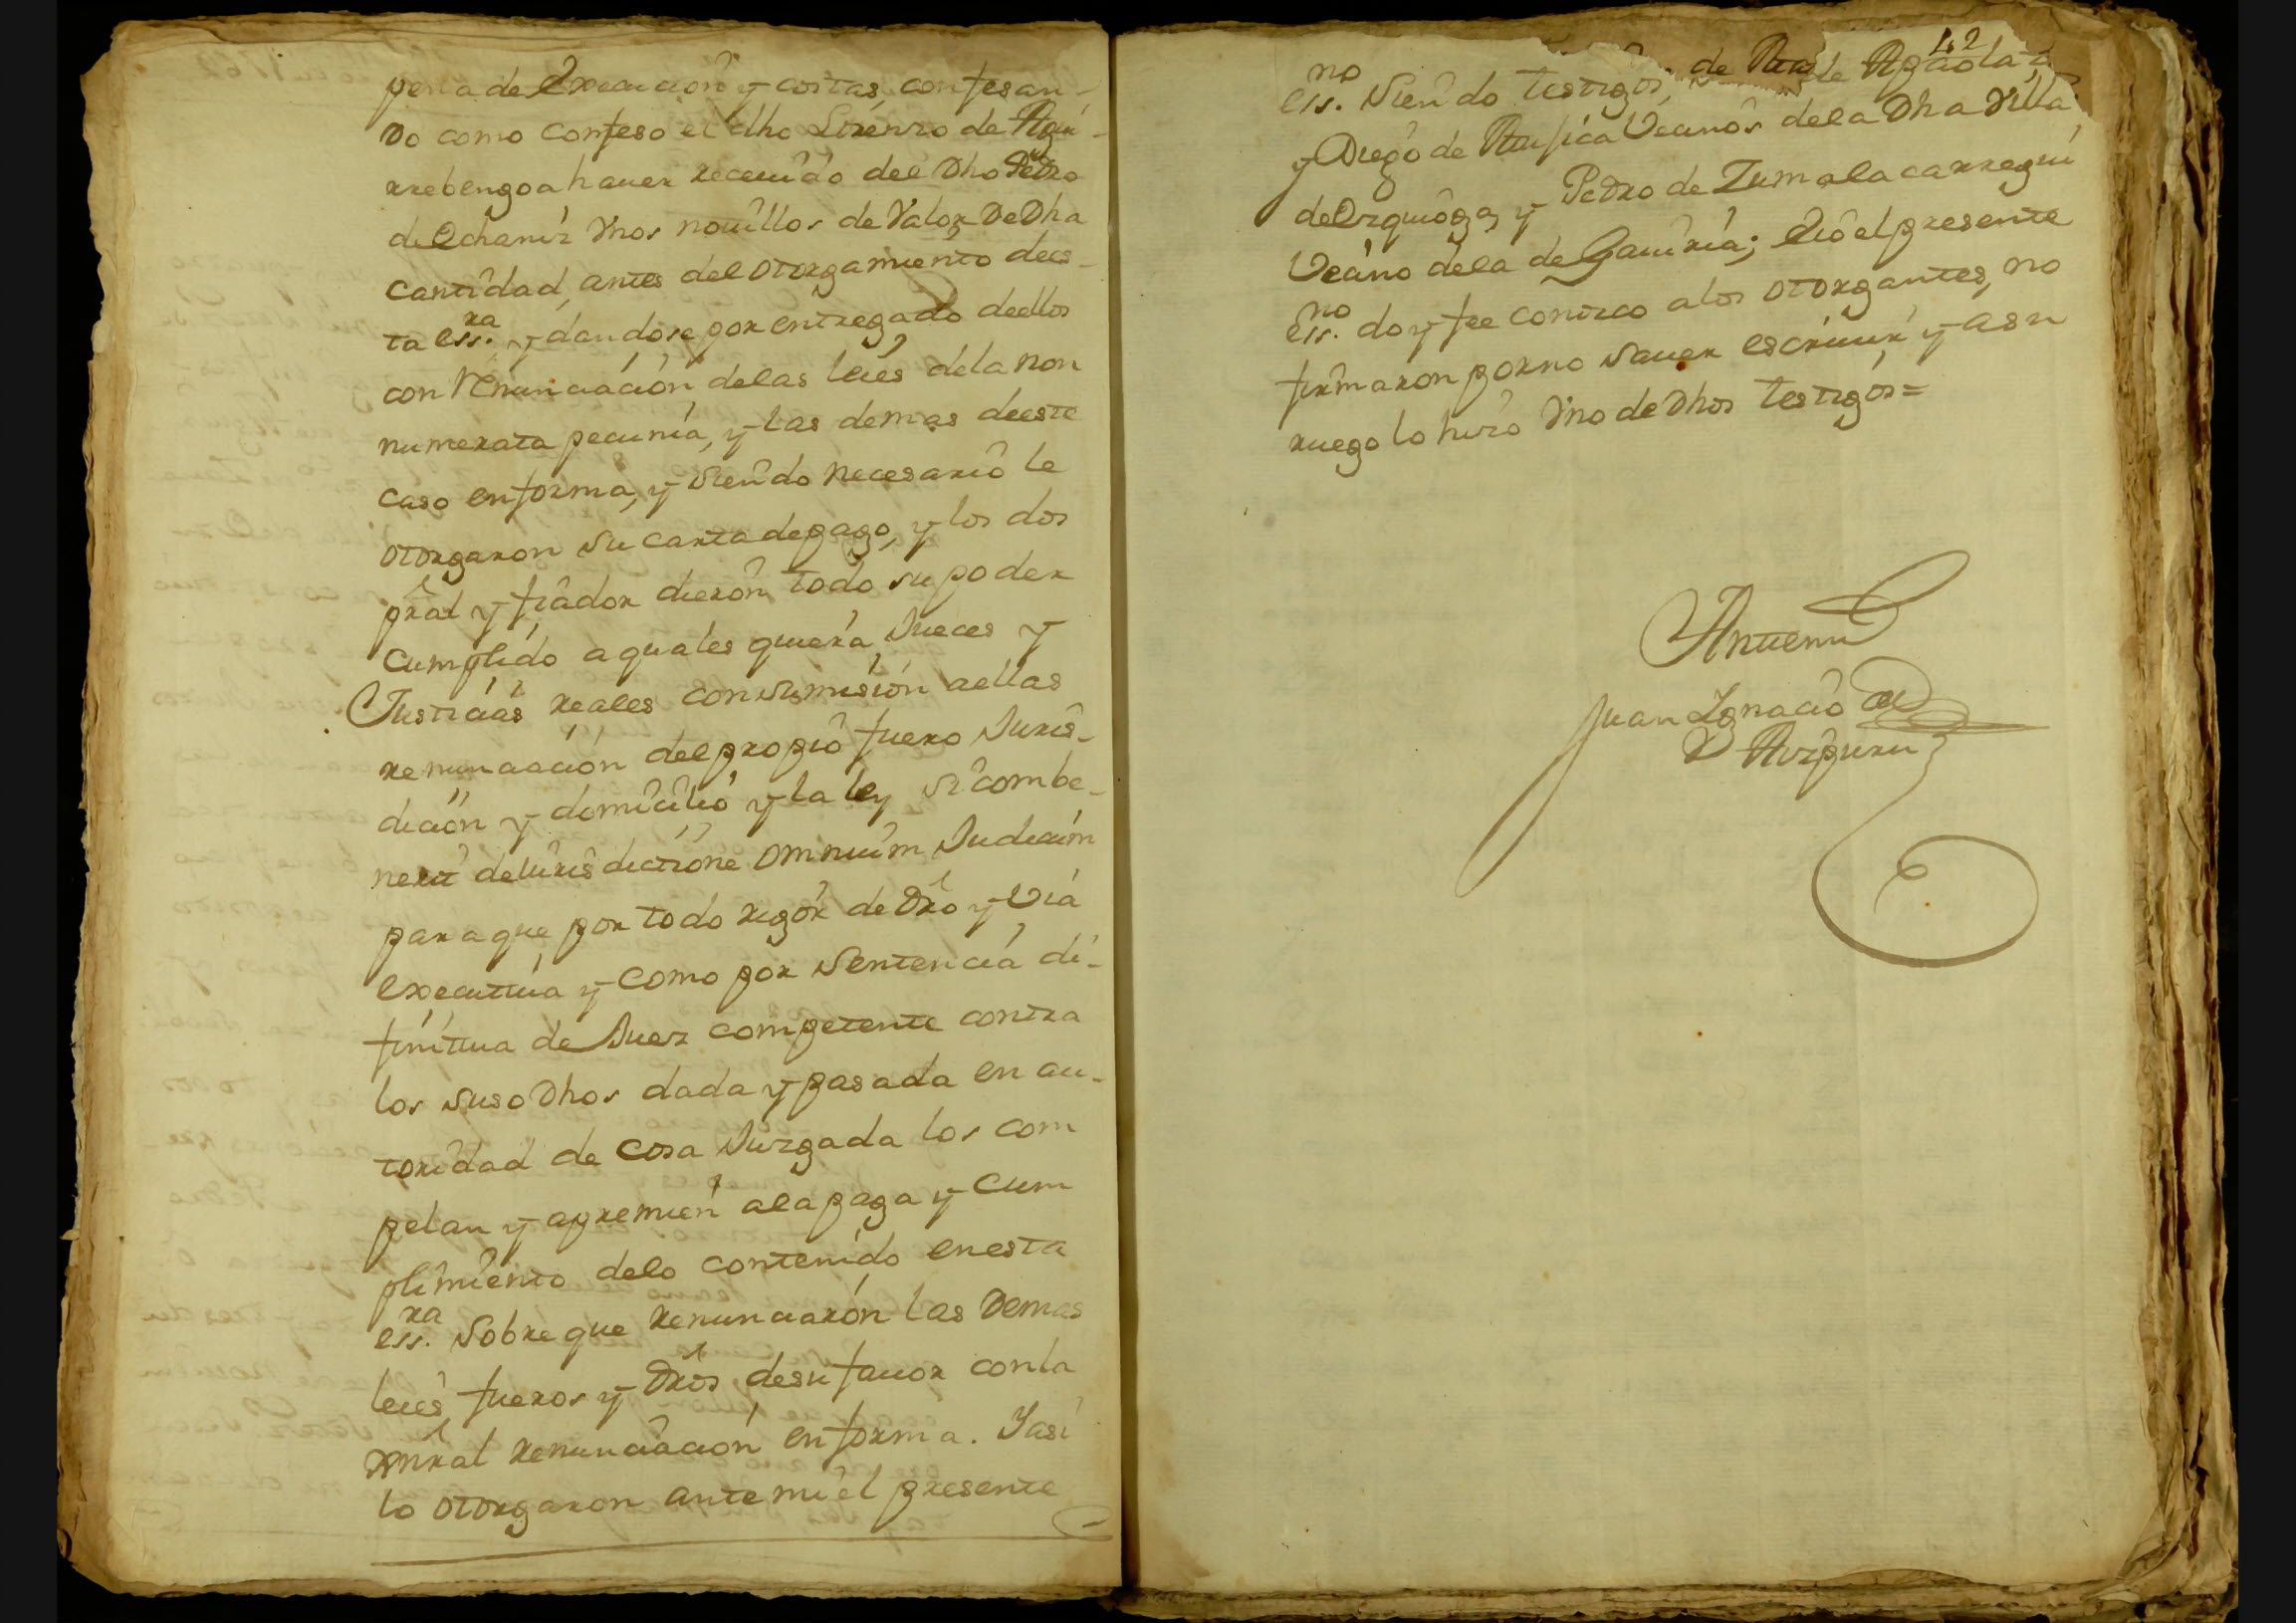 pena de execucion y costas, confesan-
do como confeso el dho Lorenzo de Agui-
rrebengoa hauer receuido del Dho Pedro
de Ochaniz Vnos nouillos de Valor De Dha
cantidad, antes del otorgamiento de es-
ta ess.ra y dandose por entregado de ellos
con renunciacion de las leies de la non
numerata pecunia, y las demas de este
caso en forma, y siendo necesario le
otorgaron su carta de pago, y los dos
pral y fiador dieron todo su poder
cumplido a quales quiera Jueces y
Justicias reales con sumision a ellas
renunciacion del propio fuero Juris-
dicion y domicilio y la ley si combe-
nerit de Iurisdictione omnium Judicum
para que por todo rigor de Dro y Via
executiua y como por sentencia di-
finitiua de Juez competente contra
los suso Dhos dada y pasada en au-
toridad de cosa Juzgada los com
pelan y apremien a la paga y cum
plimiento de lo contenido en esta
ess.ra sobre que renunciaron las Demas
leies fueros y Dros de su fauor con la
gnral renunciacion en forma. Y asi
lo otorgaron ante mi el presente
42
ess.no siendo testigos, de de Agaola
y Diego de Vecinos de la Dha Villa
de Vrquioga, y Pedro de Zumalacarregui
Vecino de la de Gauiria; e io el presente
ess.no doy fee conozco a los otorgantes, no
firmaron por no sauer escriuir y a su
ruego lo hizo Vno de Dhos testigos =
Ante mi
Juan Ignacio de
Aizpuru